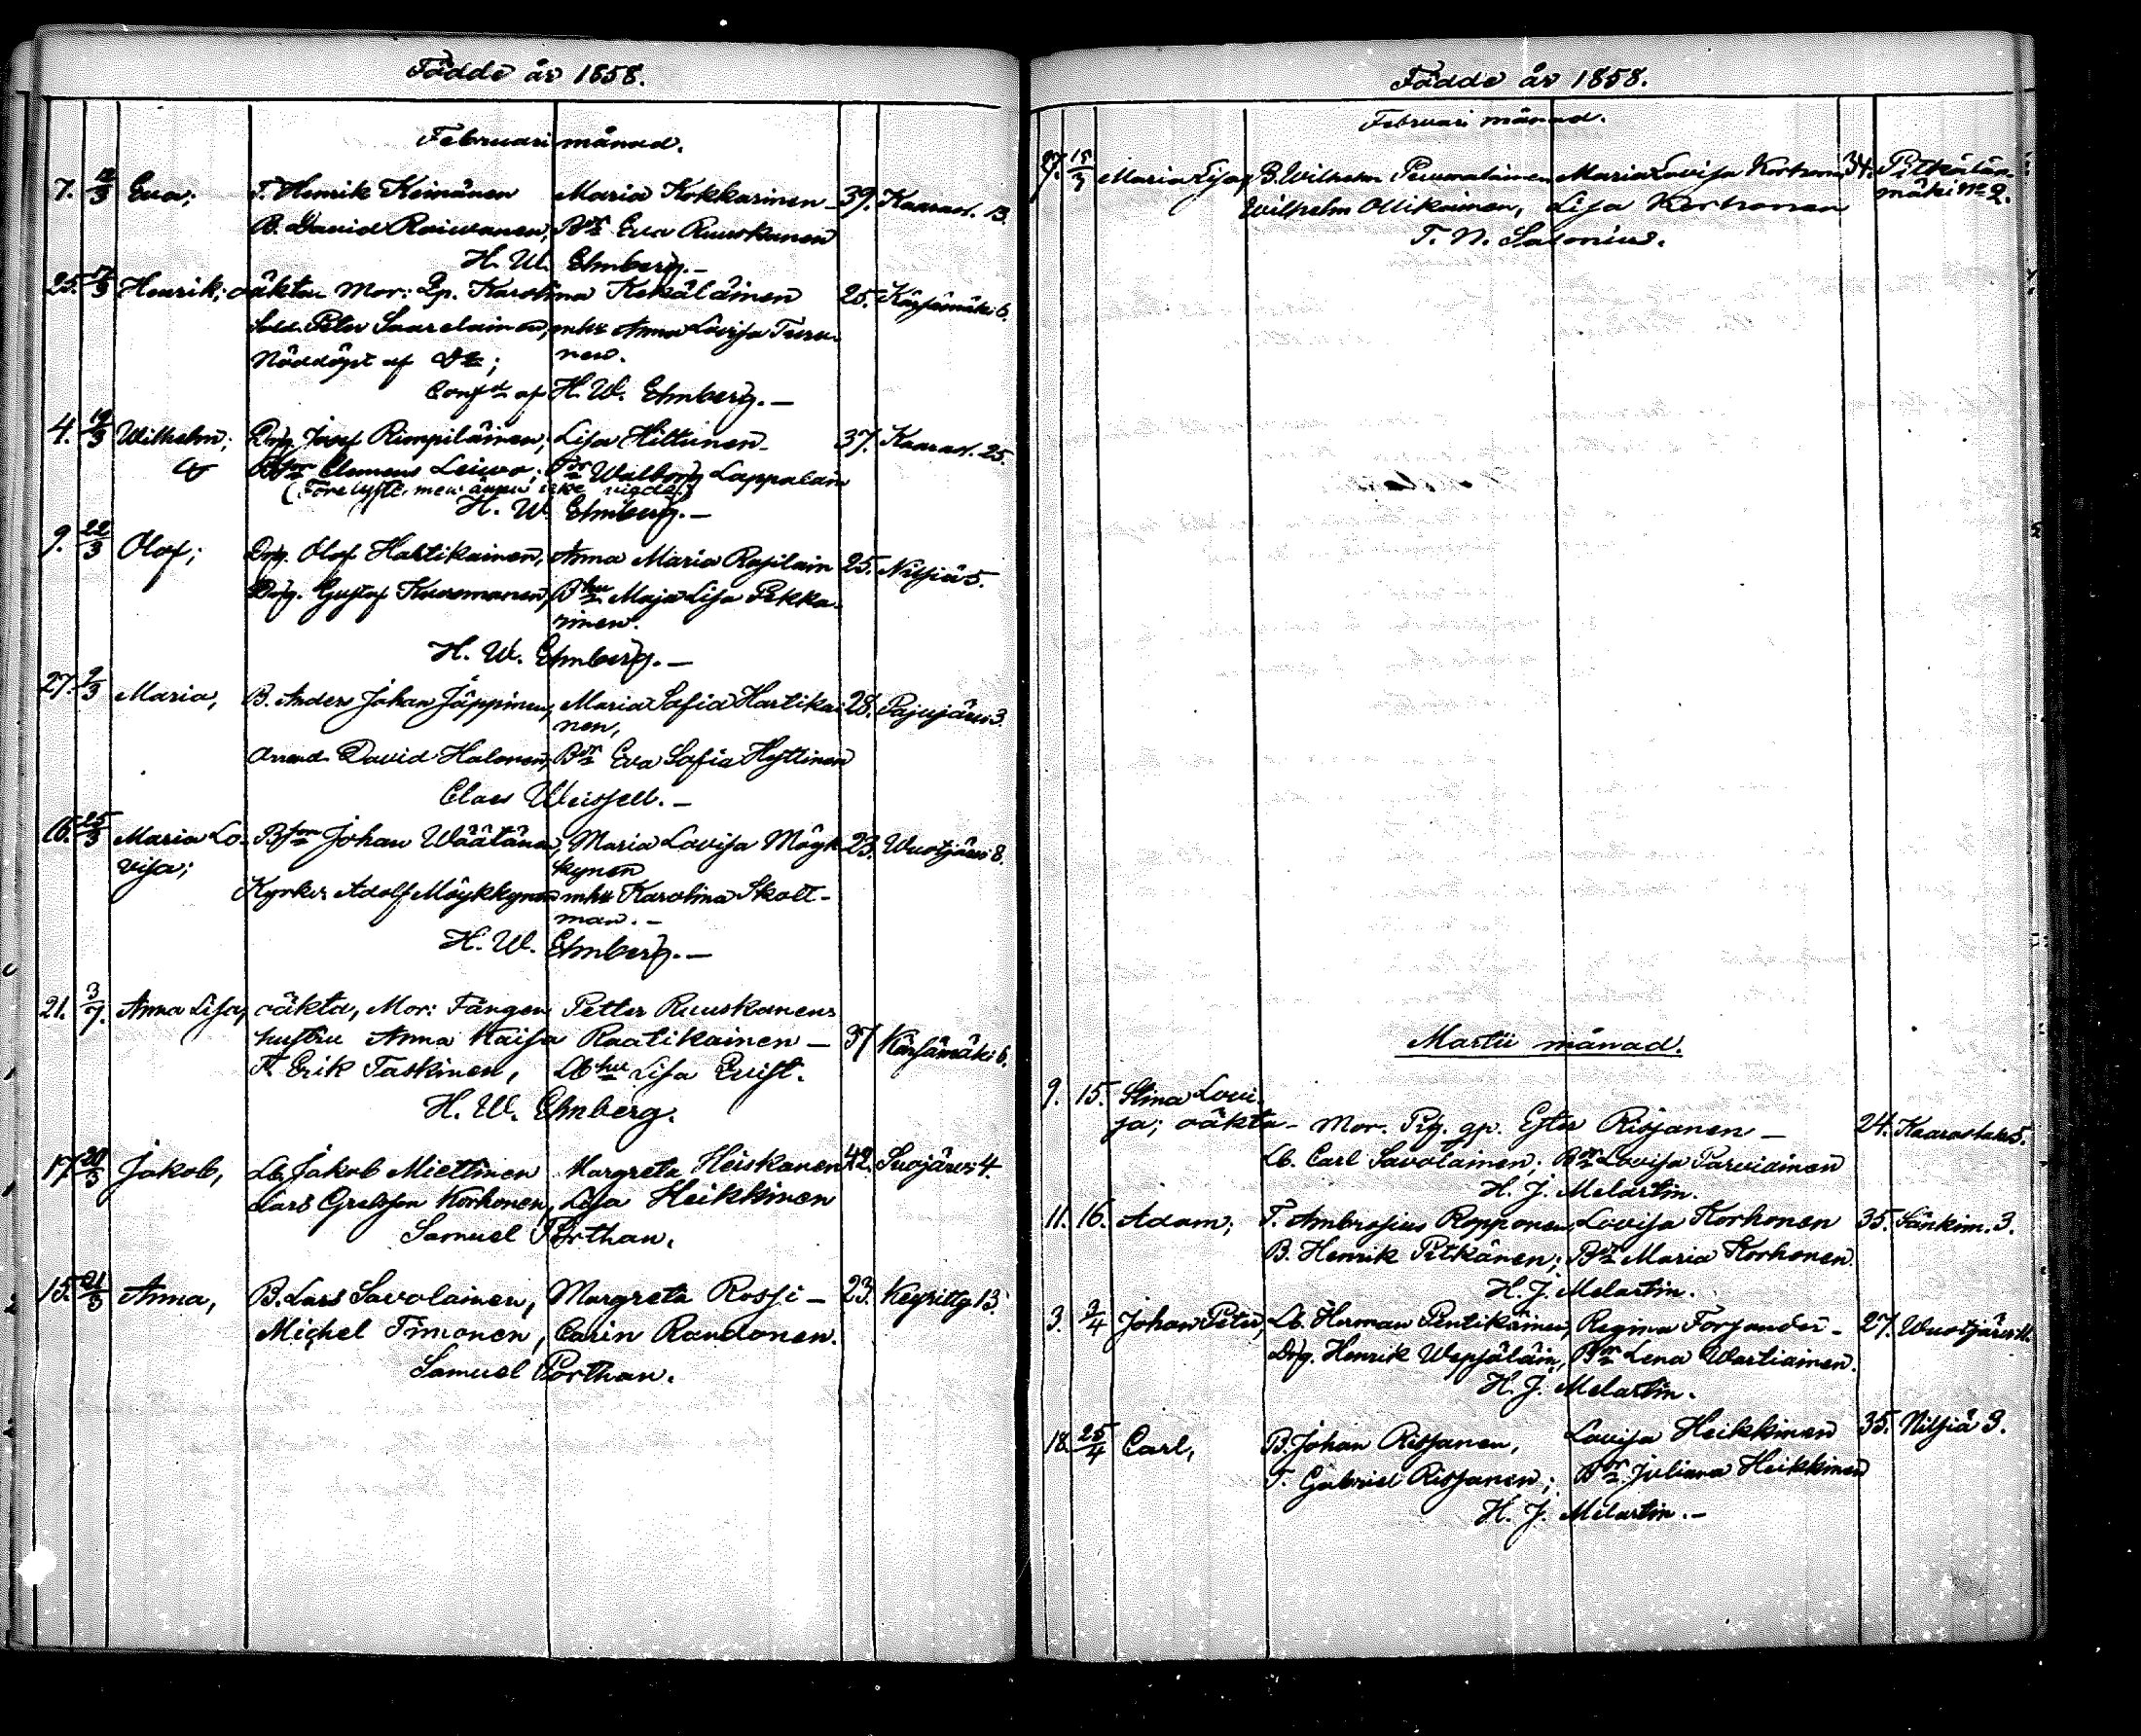 Födde år 1858.
Februari månad.
7. 12/3 Eva; T. Henrik Keinänen Maria Kokkarinen 39. Kaarast. 13.
B. David Roivanen, Eva Ruuskanen
H. W. Ehnberg.
25. 17/3 Henrik; oäkta Mor: Karolina Kekäläinen 25. Kärsämäki 6.
Sold. Peter Saarelainen, mhu Anna Lovisa Turu-
nen.
Nöddöpt af
Confd af H. W. Ehnberg.
4. 19/3 Wilhelm; Drg. Josef Rimpiläinen, Lisa Hiltunen 37. Kaarast. 25.
Clemens Leivo; Walborg Lappalain
(Förelyste, men ännu icke vigde)
H. W. Ehnberg.
9. 22/3 Olof; Drg. Olof Hartikainen, Anna Maria 25. Nilsiä 5.
Drg. Gustaf Maja Lisa Pekka-
rinen.
H. W. Ehnberg.
27. 2/3 Maria, B. Anders Johan Jäppinen, Maria Sofia Hartikai- 28. Pajujärvi 3.
nen,
Arrend. David Halonen, Eva Sofia Hyttinen
Claes Weissell.
16. 25/3 Maria Lo- Bson Johan Wäätänen, Maria Lovisa Möyk- 23. Wuotjärvi 8.
visa; kynen
Kyrkv. Adolf Möykkynen mhu Karolina Skolt-
man.
H. W. Ehnberg.
21. 3/7. Anna Lisa, oäkta, Mor: Fången Petter Ruuskanens
hustru Anna Kaisa Raatikainen 37 Kärsämäki 6.
T. Erik Taskinen, Lbhu Lisa Qvist.
H. W. Ehnberg.
17. 20/3 Jakob, Lb. Jakob Miettinen Margreta Heiskanen 42. Suojärvi 4.
Lars Gretsson Korhonen, Lisa Heikkinen
Samuel Porthan.
15. 21/3 Anna, B. Lars Savolainen, Margreta Rossi 23. Keyritty 13
Michel Timonen, Carin Randonen.
Samuel Porthan.
Födde år 1858.
Februari månad.
27. 15/3 Maria Lisa, B. Wilhelm Maria Lovisa Korhonen 34. Pitkälän-
Wilhelm Ollikainen, Lisa Korhonen mäki No 2.
T. N. Salonius.
Martii månad.
9. 15. Stina Lovi-
sa; oäkta Mor. Pig. gp. Ester Risjanen 24. Kaarastak. 5.
Lb. Carl Savolainen; Lovisa Parviainen
H. J. Melartin.
11. 16. Adam; T. Ambrosius Ropponen, Lovisa Korhonen 35. Sänkim. 3.
B. Henrik Pitkänen; Maria Korhonen.
H. J. Melartin.
3. 2/4 Johan Peter, Lb. Herman Pentikäinen, Regina Forsander 27. Wuotjärvi 11.
Drg. Henrik Wepsäläin, Lena Wartiainen.
H. J. Melartin.
18. 25/4 Carl, B. Johan Rissanen, Lovisa Heikkinen 35. Nilsiä 3.
T. Gabriel Rissanen; Juliana Heikkinen
H. J. Melartin.